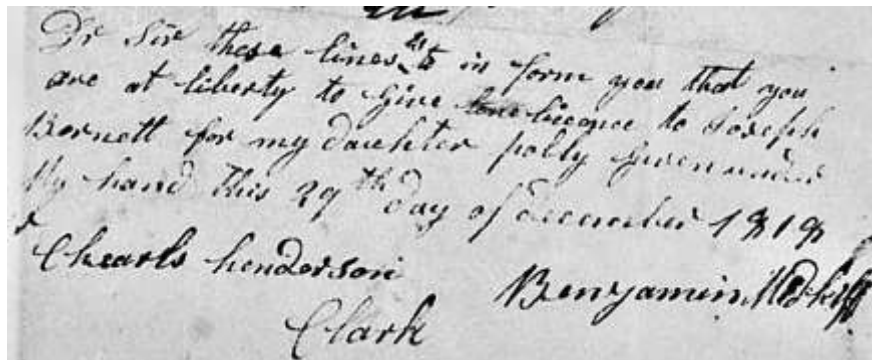 Dr Sir these lines is to in form you that you
are at liberty to give licence to Joseph
Bornett for my daughter polly Given under
My hand this 29th day of december 1818
Chearls henderson
Benjamin Medkiff
Clark